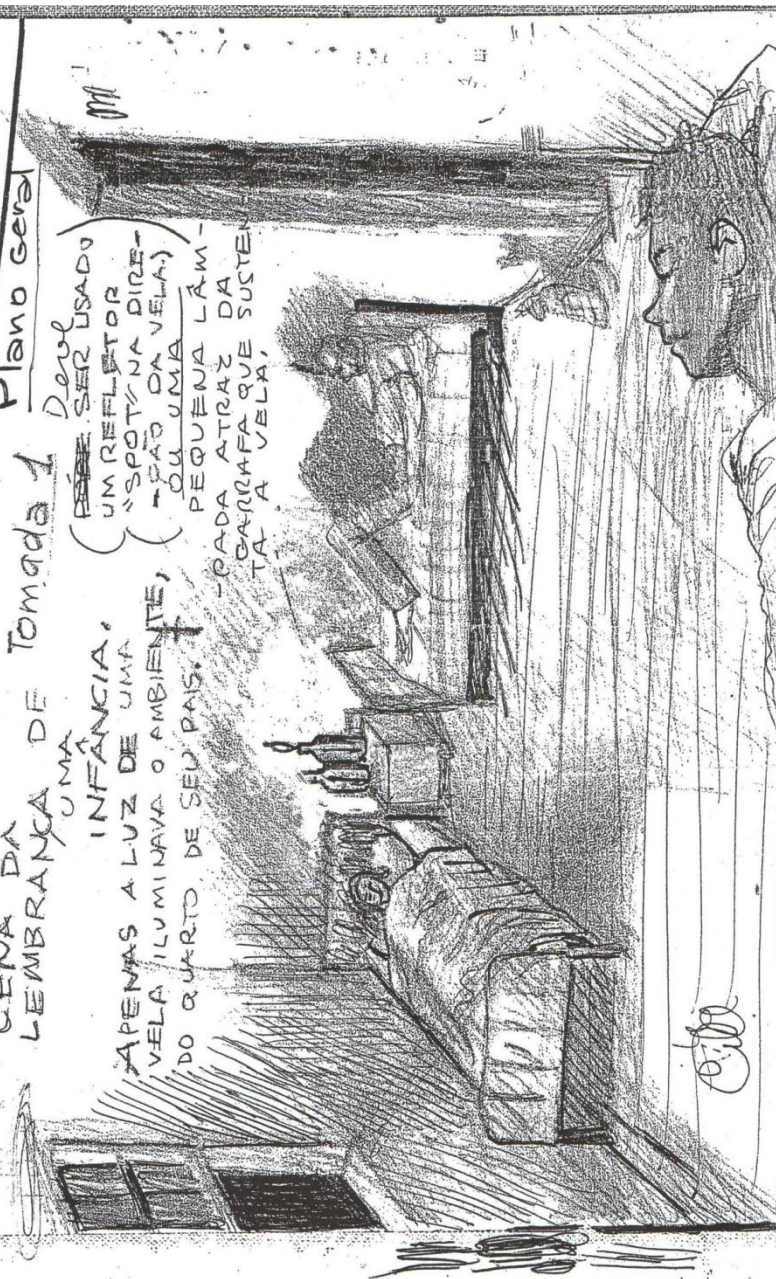 Plano Geral
CENA DA
LEMBRANÇA DE Tomada 1
UMA
INFÂNCIA.
APENAS A LUZ DE UMA
VELA ILUMINAVA O AMBIENTE,
DO QUARTO DE SEU PAIS. +
Deve
(PODE SER USADO
UM REFLETOR
"SPOT" NA DIRE-
-ÇÃO DA VELA.)
OU UMA
PEQUENA LÂM-
-PADA ATRAZ DA
GARRAFA QUE SUSTEN
TA A VELA.